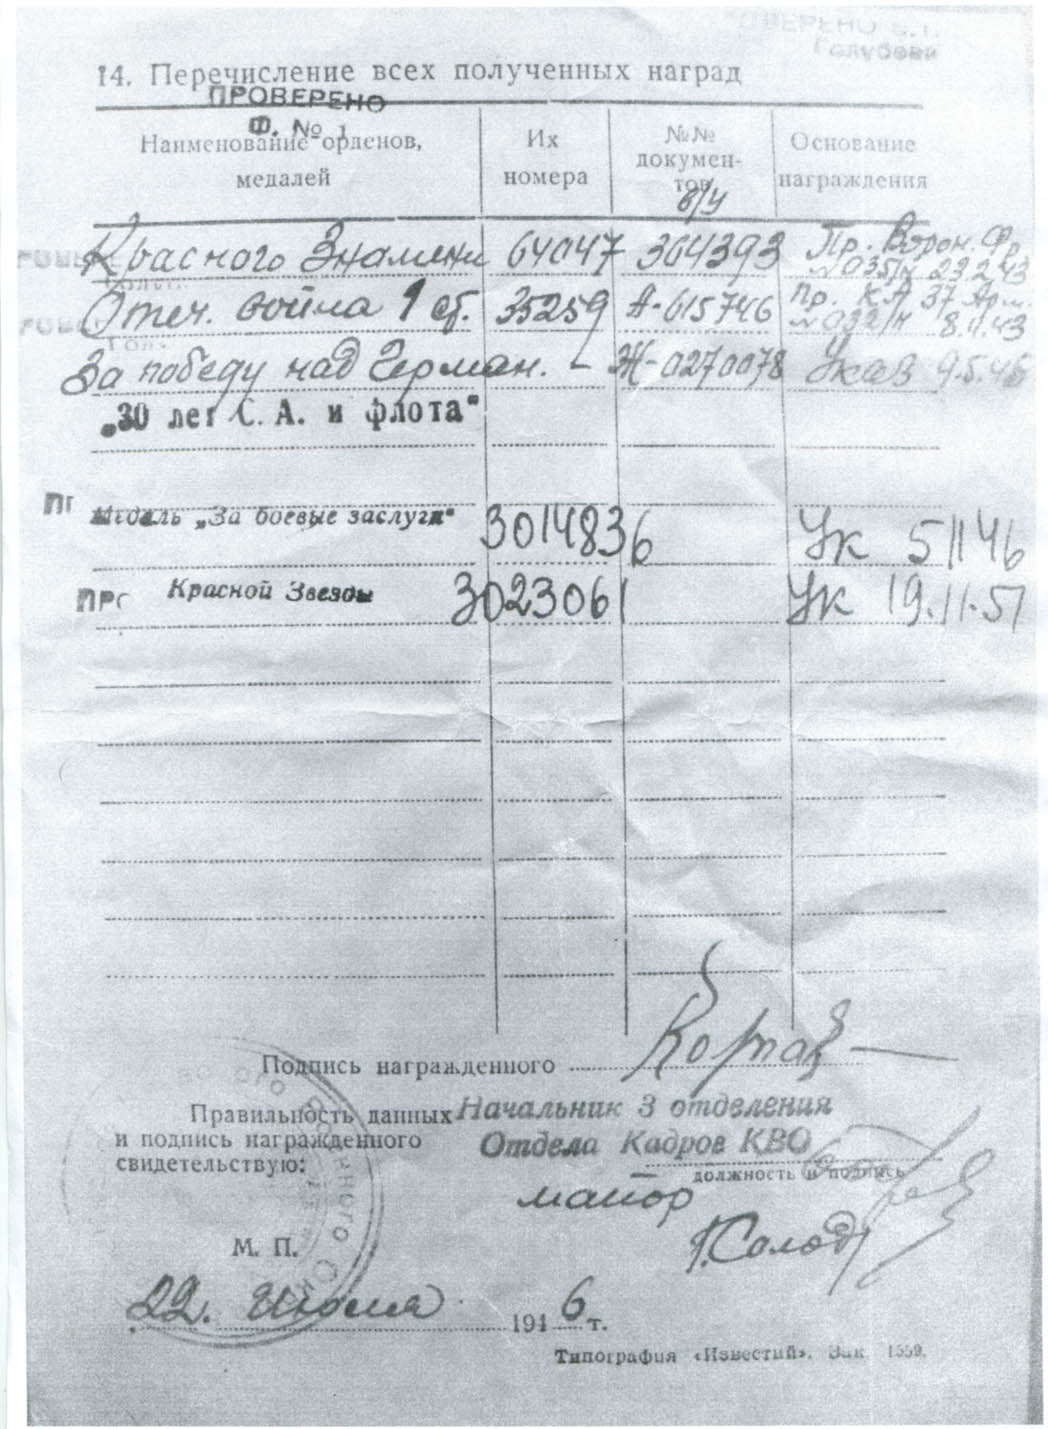 ПРОВЕРЕНО
14. Перечисление всех полученных наград
ПРОВЕРЕНО
Ф. № 1
Наименование орденов, медалей
Их номера
№№ документов
б/у
Основание награждения
Красного Знамени 64047 304393 Пр. Ворон. Фр
23.2.43
Отеч. война 1 ст. 35259 А-615746 Пр. КА 37 Арм.
8.11.43
За победу над Герман. – Ж-0270078 Указ 9.5.45
„30 лет С. А. и флота"
ПР Медаль „За боевые заслуги" 3014836 Ук 5/II 46
ПРО Красной Звезды 3023061 Ук 19.11.51
Подпись награжденного
Правильность данных Начальник 3 отделения
и подпись награжденного Отдела Кадров КВО
свидетельствую:
должность и подпись
майор
М. П.
22. Июля 1946 г.
Типография «Известий». Зак. 1559.